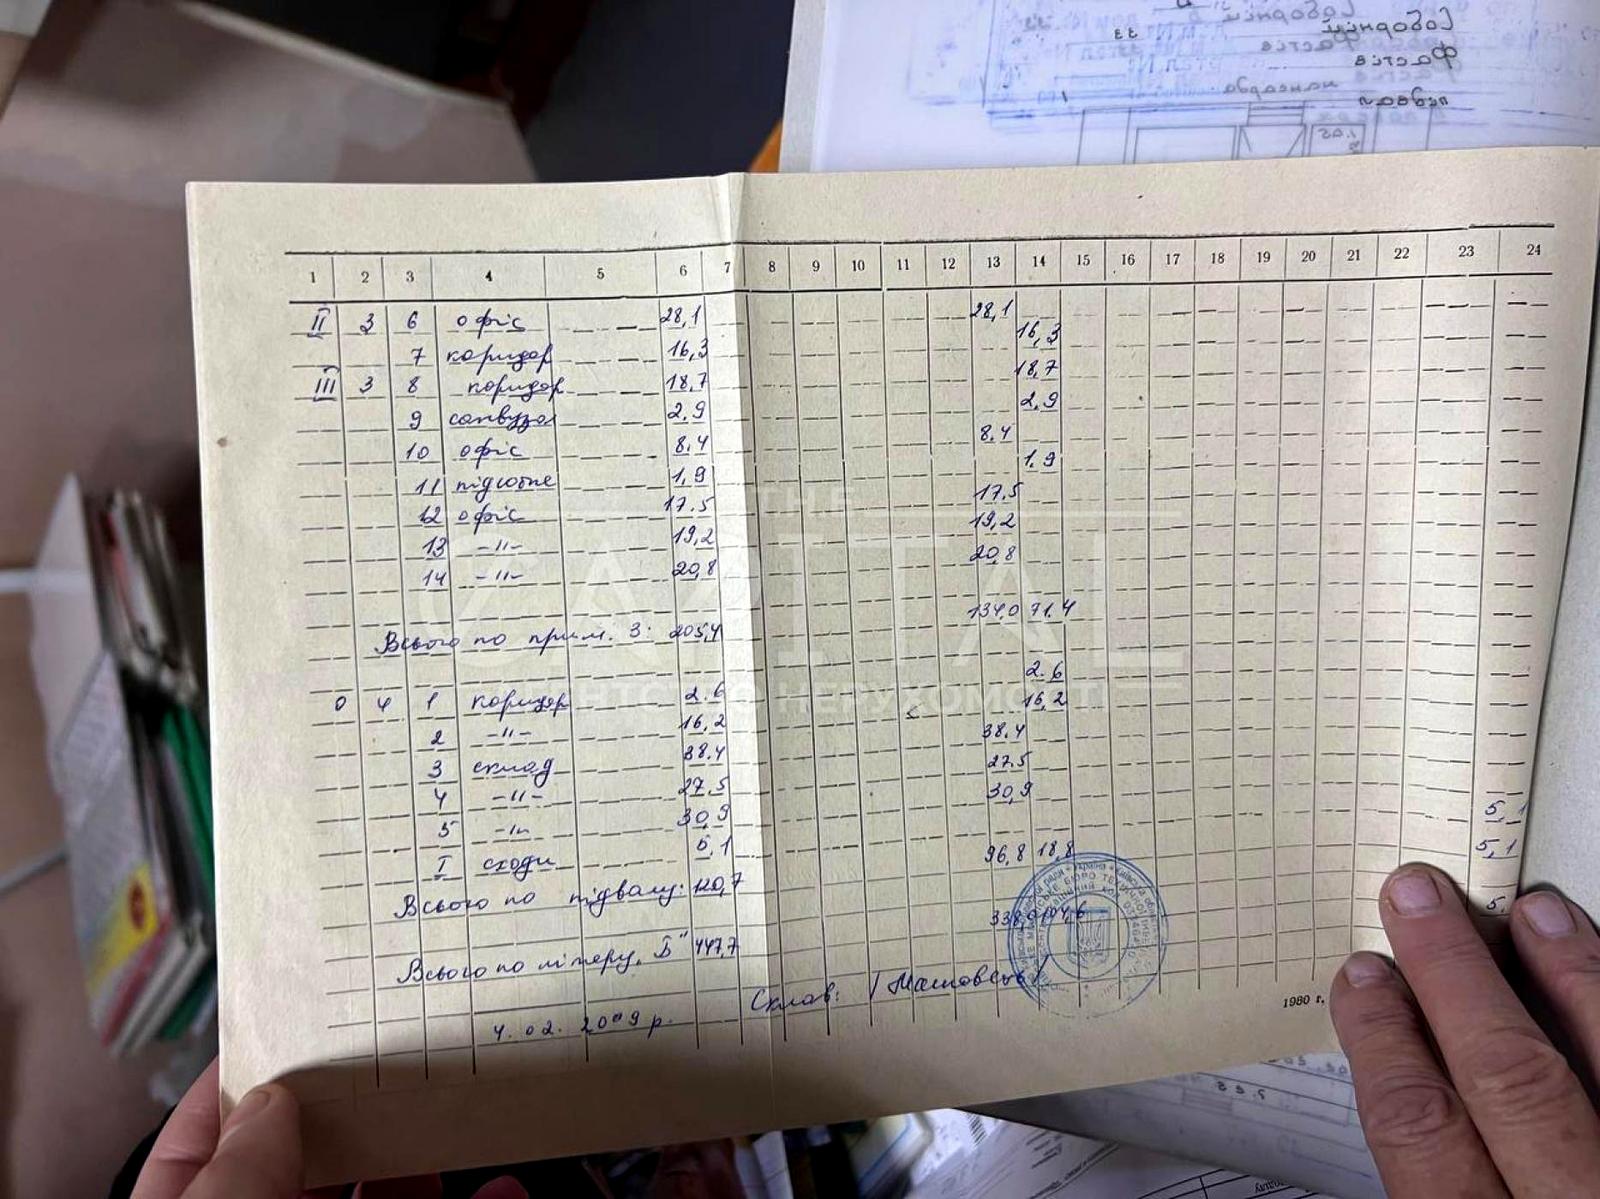 Соборній
33
Фастів
мансарда
підвал
1 2 3 4 5 6 7 8 9 10 11 12 13 14 15 16 17 18 19 20 21 22 23 24
II 3 6 офіс 28,1 28,1
7 коридор 16,3 16,3
III 3 8 коридор 18,7 18,7
9 санвузол 2,9 2,9
10 офіс 8,4 8,4
11 підсобне 1,9 1,9
12 офіс 17,5 17,5
13 -"- 19,2 19,2
14 -"- 20,8 20,8
Всього по прим. 3: 205,4 134,0 71,4
0 4 1 коридор 2,6 2,6
2 -"- 16,2 16,2
3 склад 38,4 38,4
4 -"- 27,5 27,5
5 -"- 30,9 30,9
I сходи 5,1 5,1
Всього по підвалу: 120,7 96,8 18,8 5,1
Всього по літеру „Б" 447,7
4.02.2009 р. Склав:
1980 г.
THE
CAPITAL
АГЕНТСТВО НЕРУХОМОСТІ